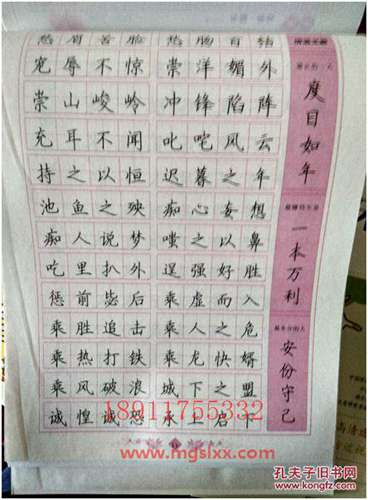 宠辱不惊 崇洋媚外
崇山峻岭 冲锋陷阵
充耳不闻 叱咤风云
持之以恒 迟暮之年
池鱼之殃 痴心妄想
痴人说梦 嗤之以鼻
吃里扒外 逞强好胜
惩前毖后 乘虚而入
乘胜追击 乘人之危
乘热打铁 乘龙快婿
乘风破浪 城下之盟
诚惶诚恐 承上启下
最长的一天
度日如年
一本万利
安份守己
18911755332
www.mgslxx.com
孔夫子旧书网